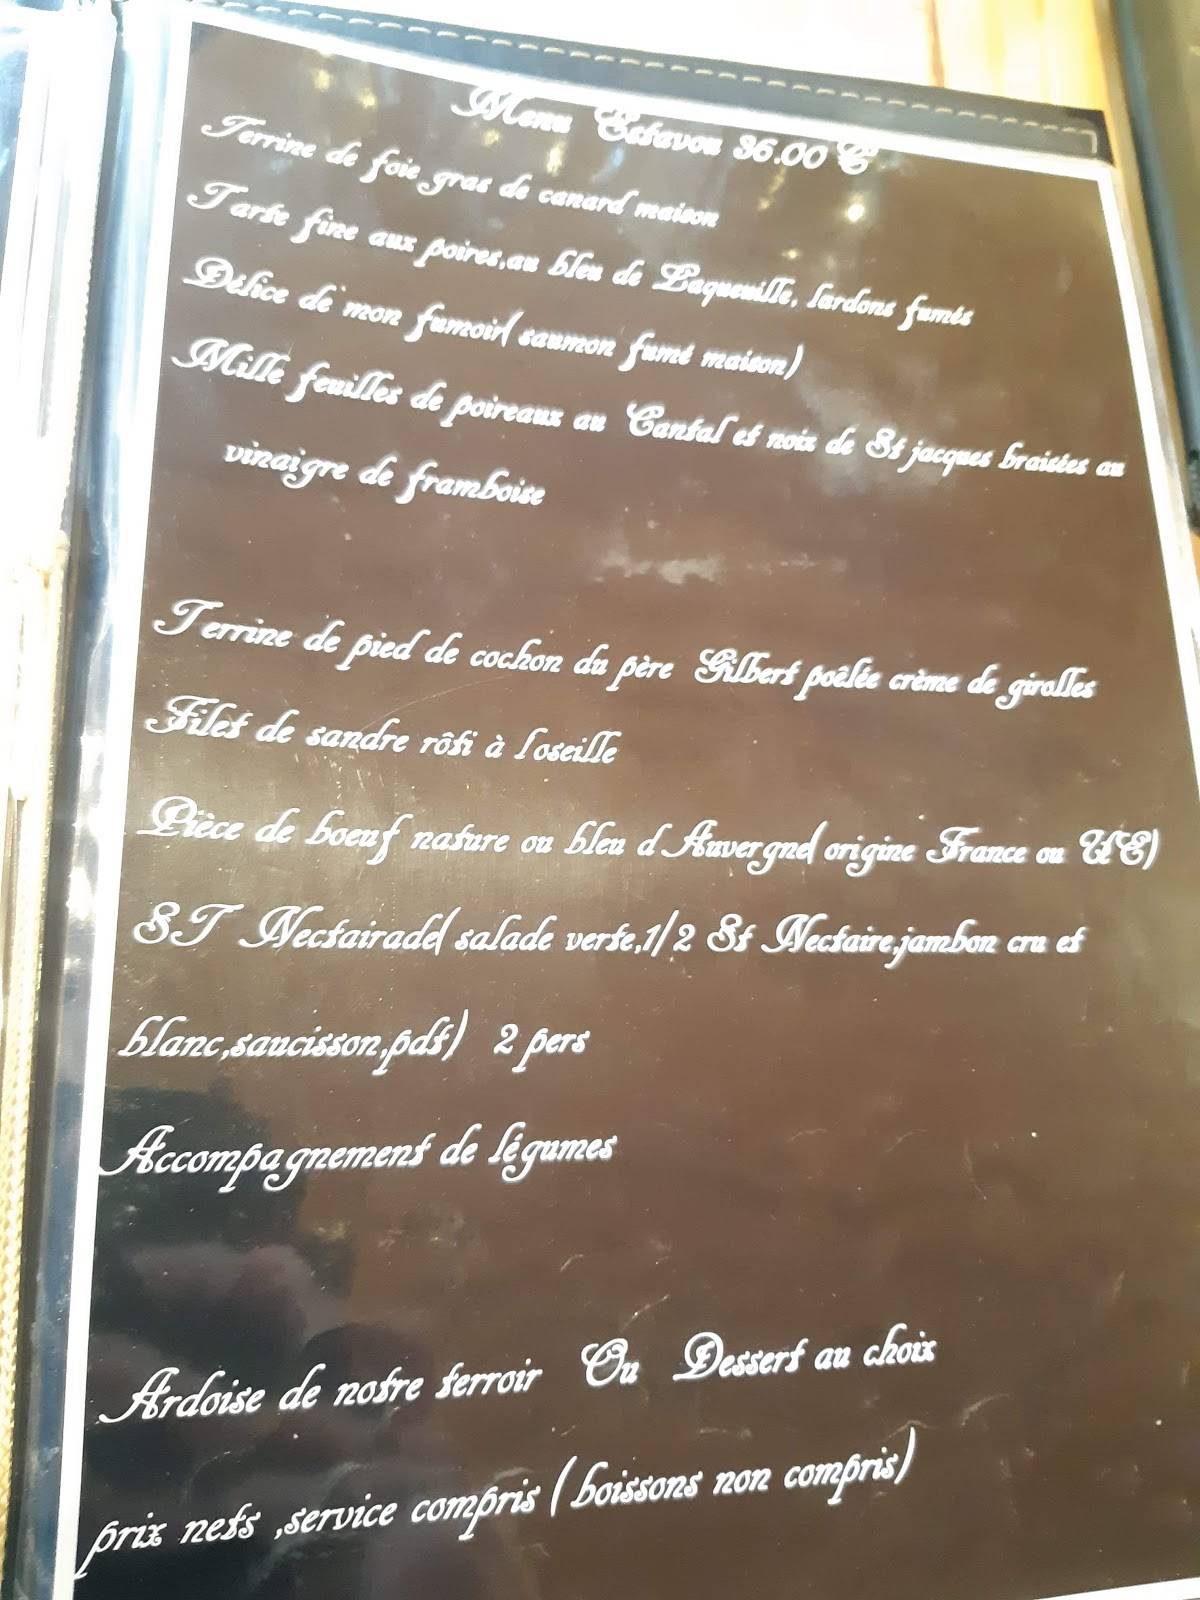 Menu Estavou 36.00 €
Terrine de foie gras de canard maison
Tarte fine aux poires,au bleu de Laqueuille, lardons fumés
Délice de mon fumoir( saumon fumé maison)
Mille feuilles de poireaux au Cantal et noix de St jacques braisées au
vinaigre de framboise
Terrine de pied de cochon du père Gilbert poêlée crème de girolles
Filet de sandre rôti à l'oseille
Pièce de boeuf nature ou bleu d'Auvergne( origine France ou UE)
ST Nectairade( salade verte,1/2 St Nectaire,jambon cru et
blanc,saucisson,pdt) 2 pers
Accompagnement de légumes
Ardoise de notre terroir Ou Dessert au choix
prix nets ,service compris ( boissons non compris)